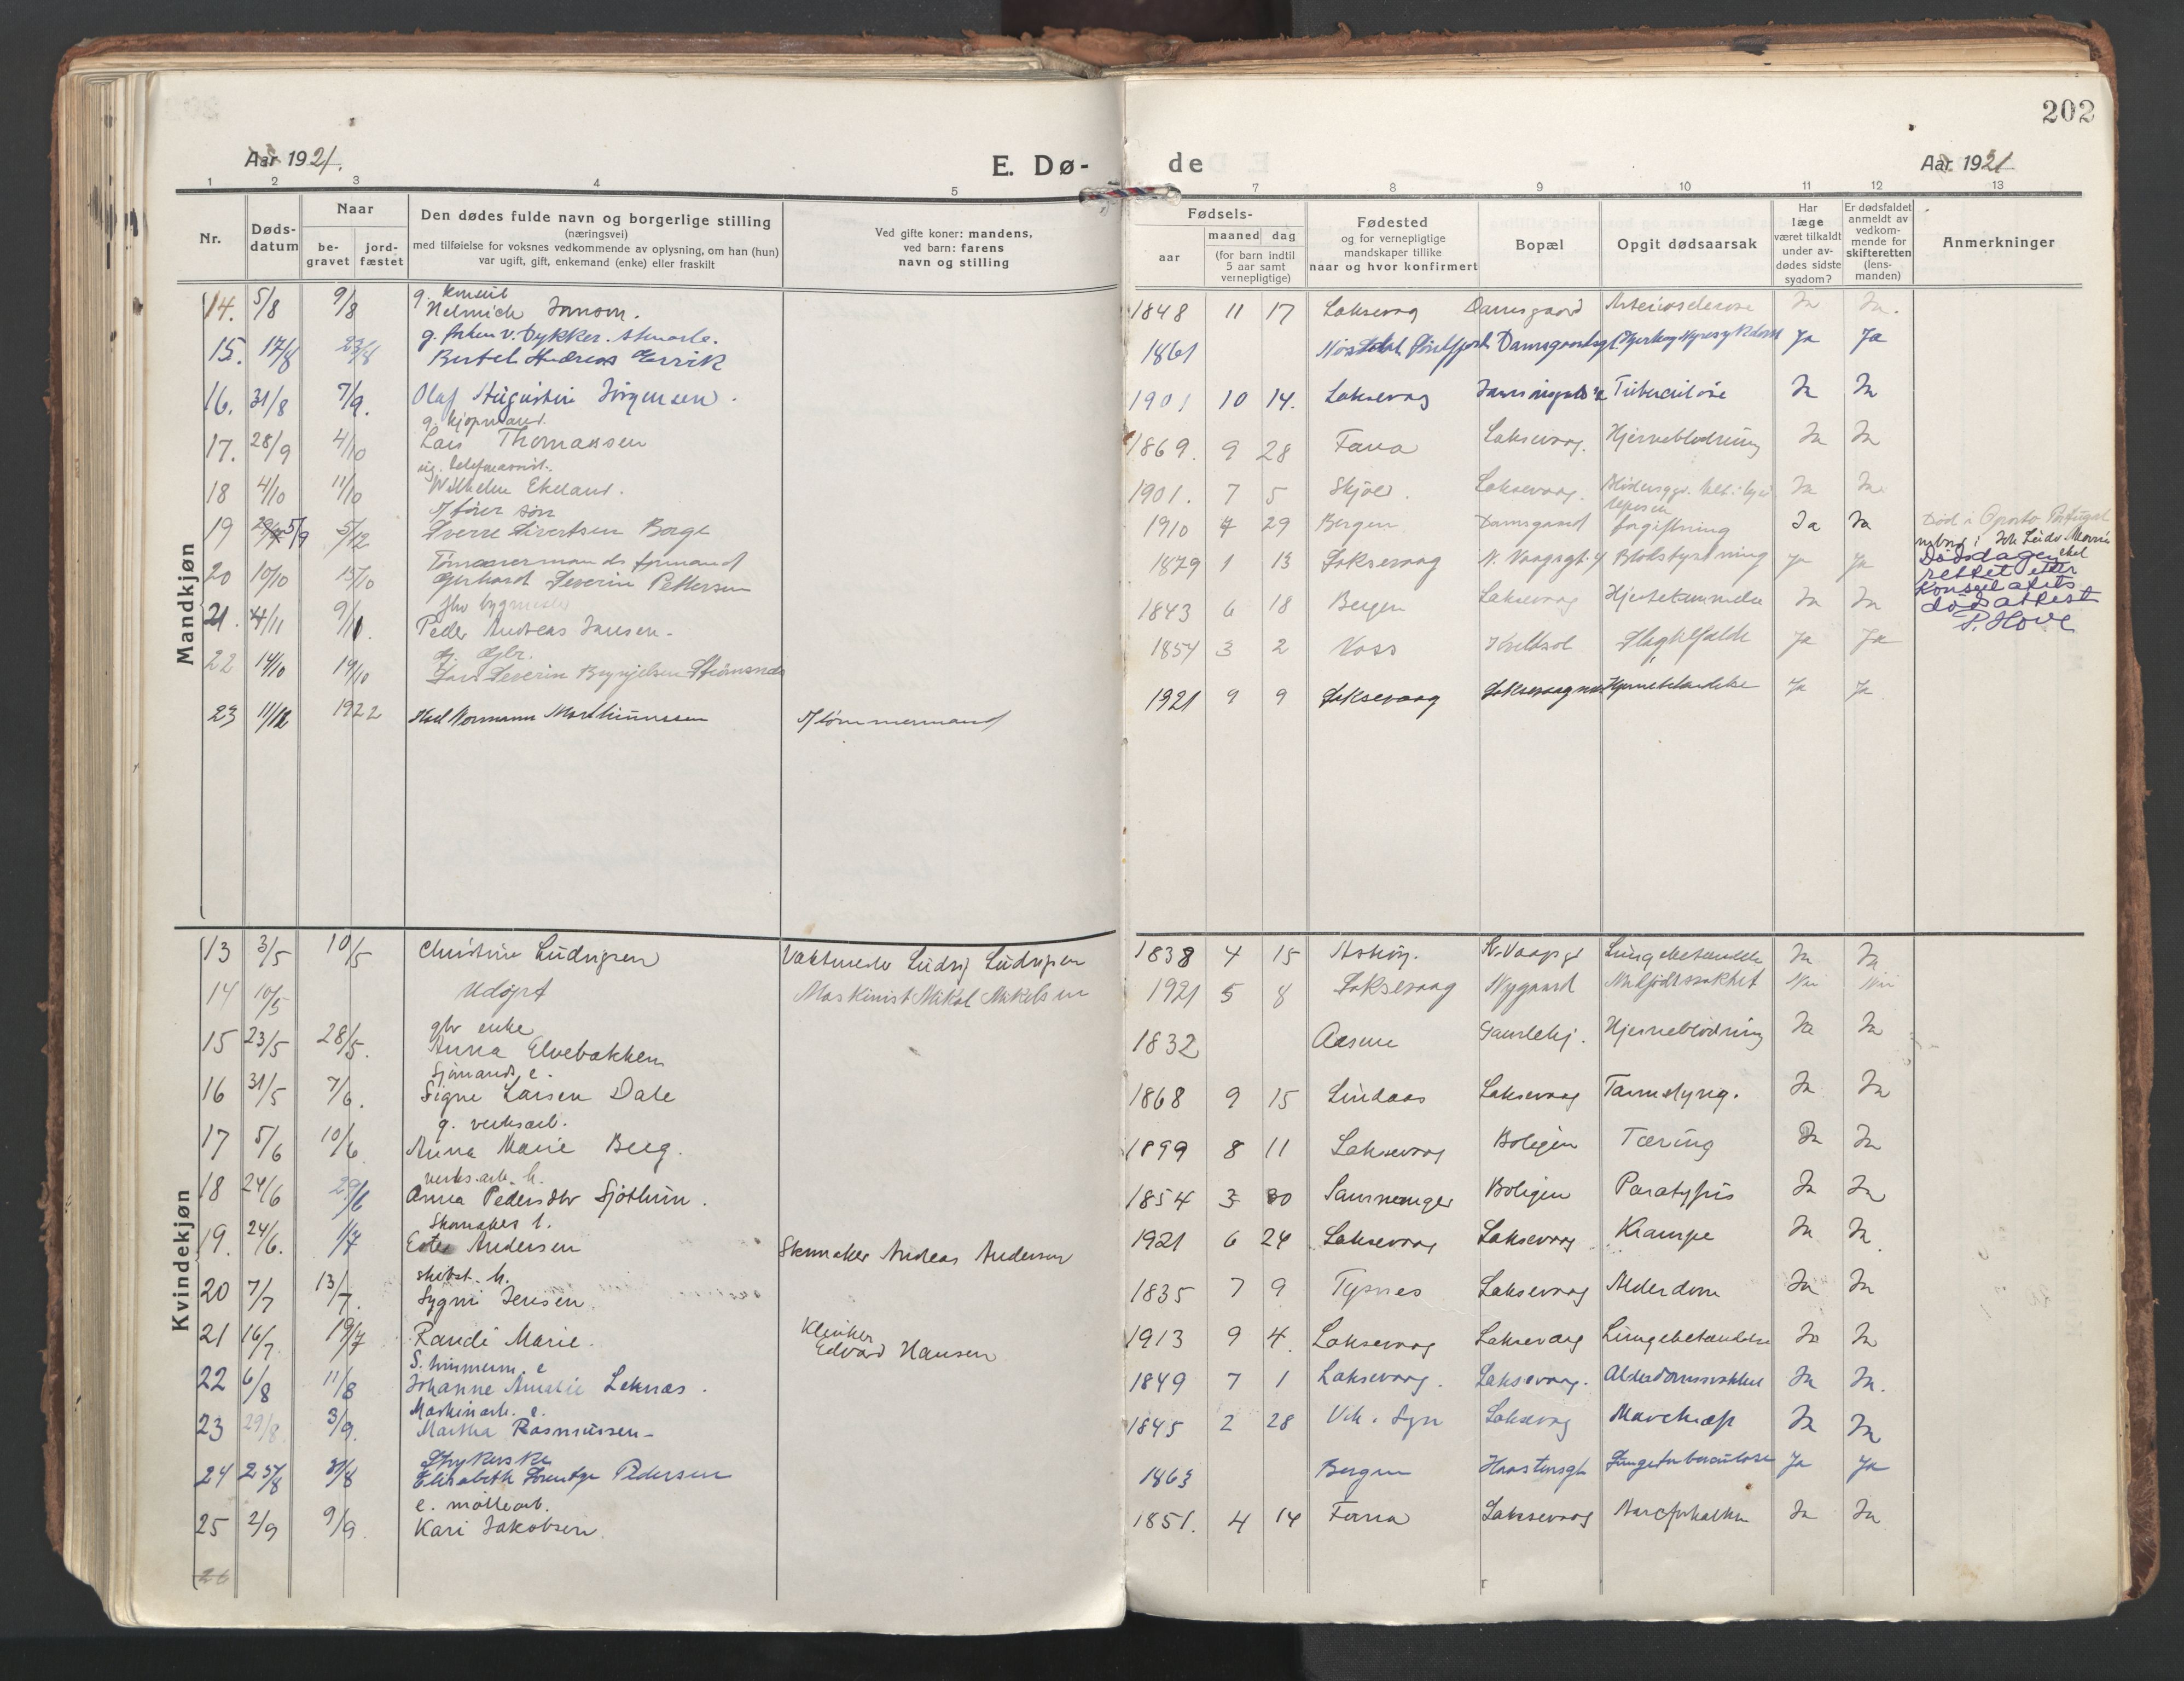 202
Aar 1921.
E. Dø-
de
Aar 1921
1 2 3 4 5 7 8 9 10 11 12 13
Nr.
Døds-
datum
Naar
be-
gravet
jord-
fæstet
Den dødes fulde navn og borgerlige stilling
(næringsvei)
med tilføielse for voksnes vedkommende av oplysning, om han (hun)
var ugift, gift, enkemand (enke) eller fraskilt
Ved gifte koner: mandens,
ved barn: farens
navn og stilling
Fødsels-
aar
maaned dag
(for barn indtil
5 aar samt
vernepligtige)
Fødested
og for vernepligtige
mandskaper tillike
naar og hvor konfirmert
Bopæl
Opgit dødsaarsak
Har
læge
været tilkaldt
under av-
dødes sidste
sygdom?
Er dødsfaldet
anmeldt av
vedkom-
mende for
skifteretten
(lens-
manden)
Anmerkninger
Mandkjøn
g. konsul
14. 5/8 9/8 Helmich Janson. 1848 11 17 Laksevag Damsgaard Arteriosclerose Ja Ja.
15. 17/8 23/8 Bertel Andreas 1861 Ja Ja
16. 31/8 7/9. Olaf Augustin Jörgensen. 1901 10 14. Laksevaag Tuberculose Ja Ja
g. kjøpmand.
17. 28/9 4/10 Lars Thomassen 1869. 9 28 Fana Laksevaag. Hjerneblødning Ja Ja
18 4/10 11/10 Wilhelm Ekeland. 1901. 7 5 Skjold. Laksevaag. Ja Ja
19 5/9 5/12 Sverre Sivertsen Borge 1910 4 29 Bergen Damsgaard forgiftning Ja Ja
Død i Oporto Portugal
Dødsdagen
rettet efter
Konsulatets
dødsattest
P. Hove
20 10/10 15/10 Gerhard Severin Pettersen 1879 1 13 Laksevaag Ja Ja
fhv bygmester
21. 4/11 9/11. Peder Andreas Jansen. 1843 6 18 Bergen Laksevaag Hjertelammelse Ja Ja
22 14/10 19/10 Lars Severin Brynjelsen 1854 3 2 Voss Ja Ja
23 11/12 1922 Karl Normann Marthinussen tømmermand 1921 9 9 Laksevaag Ja Ja
Kvindekjøn
13 3/5 10/5 Christine Ludvigsen Vaktmester Ludvig Ludvigsen 1838 4 15 Askøy. Lungebetændelse Ja Ja
14 10/5 Udøpt Maskinist Mikal Mikelsen 1921 5 8 Laksevaag Nygaard Nei Nei
gbr enke
15 23/5 28/5. Anna Elvebakken 1832 Aasene Hjerneblødning Ja Ja
Sjömands e.
16 31/5 7/6. Signe Larsen Dale 1868 9 15 Lindaas Laksevaag Ja Ja
g. verksarb.
17 5/6 10/6 Anna Marie Berg. 1899 8 11 Laksevaag Boligen Tæring Ja Ja
verks.arb. h.
18 24/6 29/6 Anna Pedersdtr Sjöthun. 1854 3 30 Boligen Paratyfus Ja Ja
Skomakers b.
19. 24/6. 1/7 Ester Andersen Skomaker Andreas Andersen 1921 6 24 Laksevaag Laksevaag Krampe Ja Ja.
20 7/7 13/7. Sygni Jensen 1835 7 9 Tysnes Laksevaag Alderdom Ja Ja
21 16/7 19/7 Randi Marie. Klinker
Edvard Hansen 1913 9 4. Laksevaag Laksevaag Lungebetændelse Ja Ja
S. timmerm. e
22 6/8 11/8 Johanne Amalie Leknæs. 1849 7 1 Laksevaag. Laksevaag. Alderdomssvakhet Ja Ja.
Maskinarb. e.
23 29/8 3/9. Martha Rasmussen 1845 2 28 Vik i Sogn Laksevag Mavekræft Ja Ja
Strykerske
24 25/8 31/8 Elisabeth Pedersen 1863 Bergen Lungetuberculose Ja Ja
e. møllearb.
25 2/9 9/9. Kari Jakobsen 1851. 4 14 Fana Laksevaag Aareforkalkn Ja Ja
26